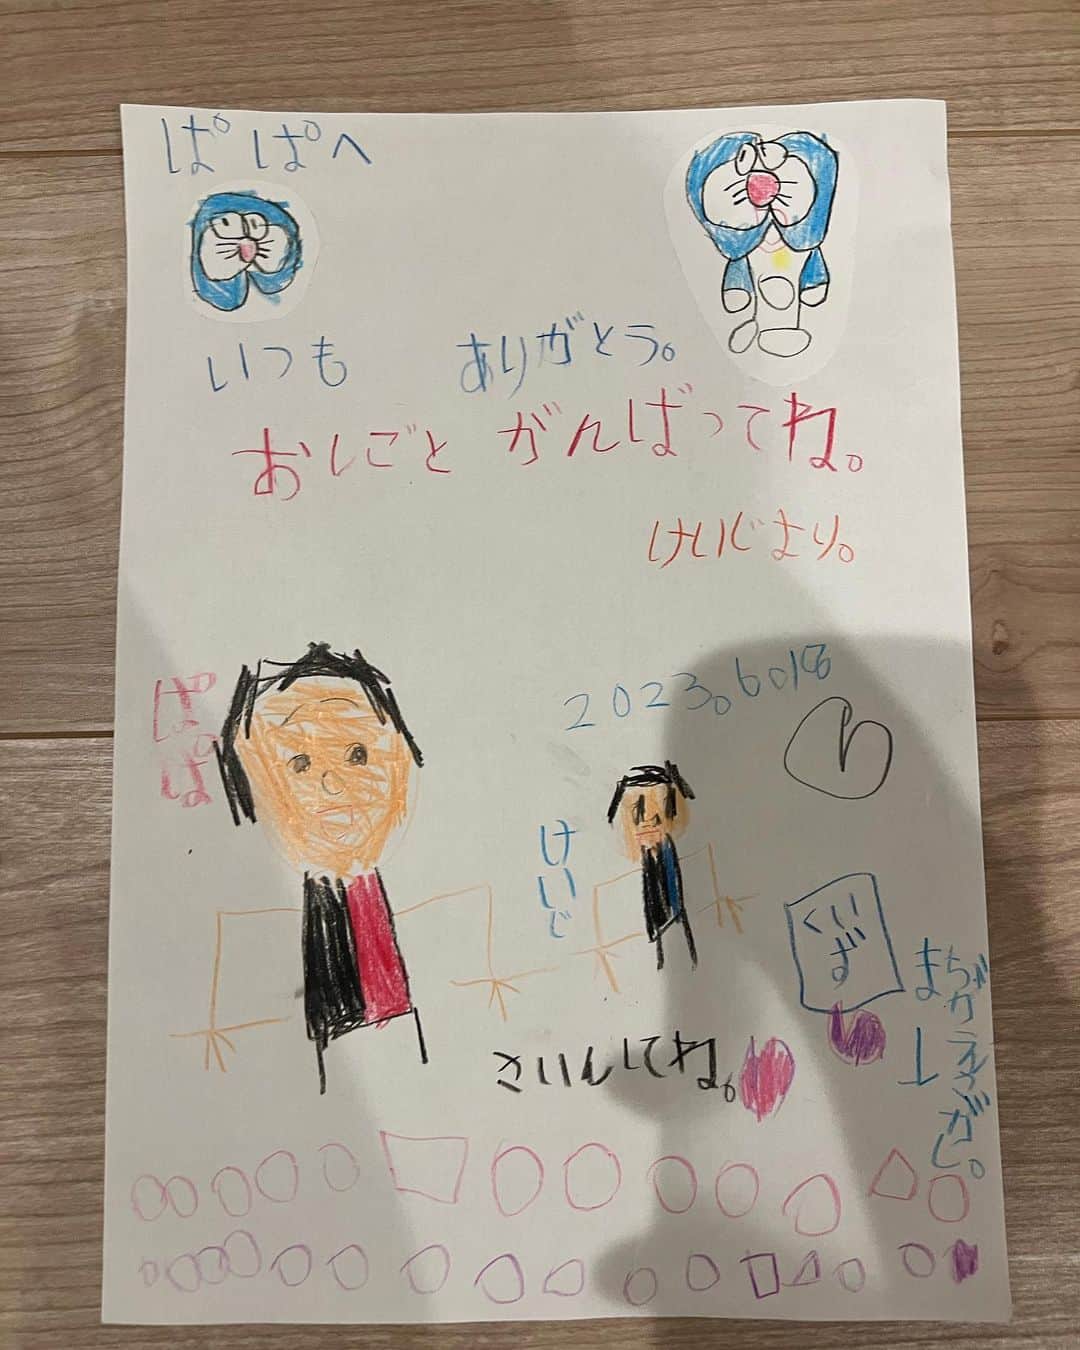 ぱぱへ
いつも ありがとう。
おしごと がんばってね。
けいじより。
2023。6。18
ぱぱ
けいじ
くいず
まちがえさがし。
さいんしてね。